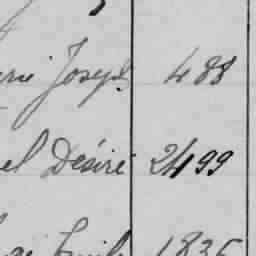 Joseph 488
el Désiré 2499
1835